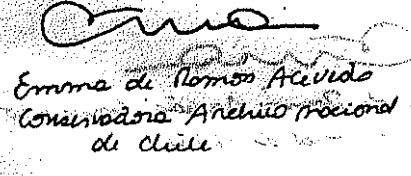 Emma de Ramón Acevedo
Conservadora Archivo nacional
de Chile